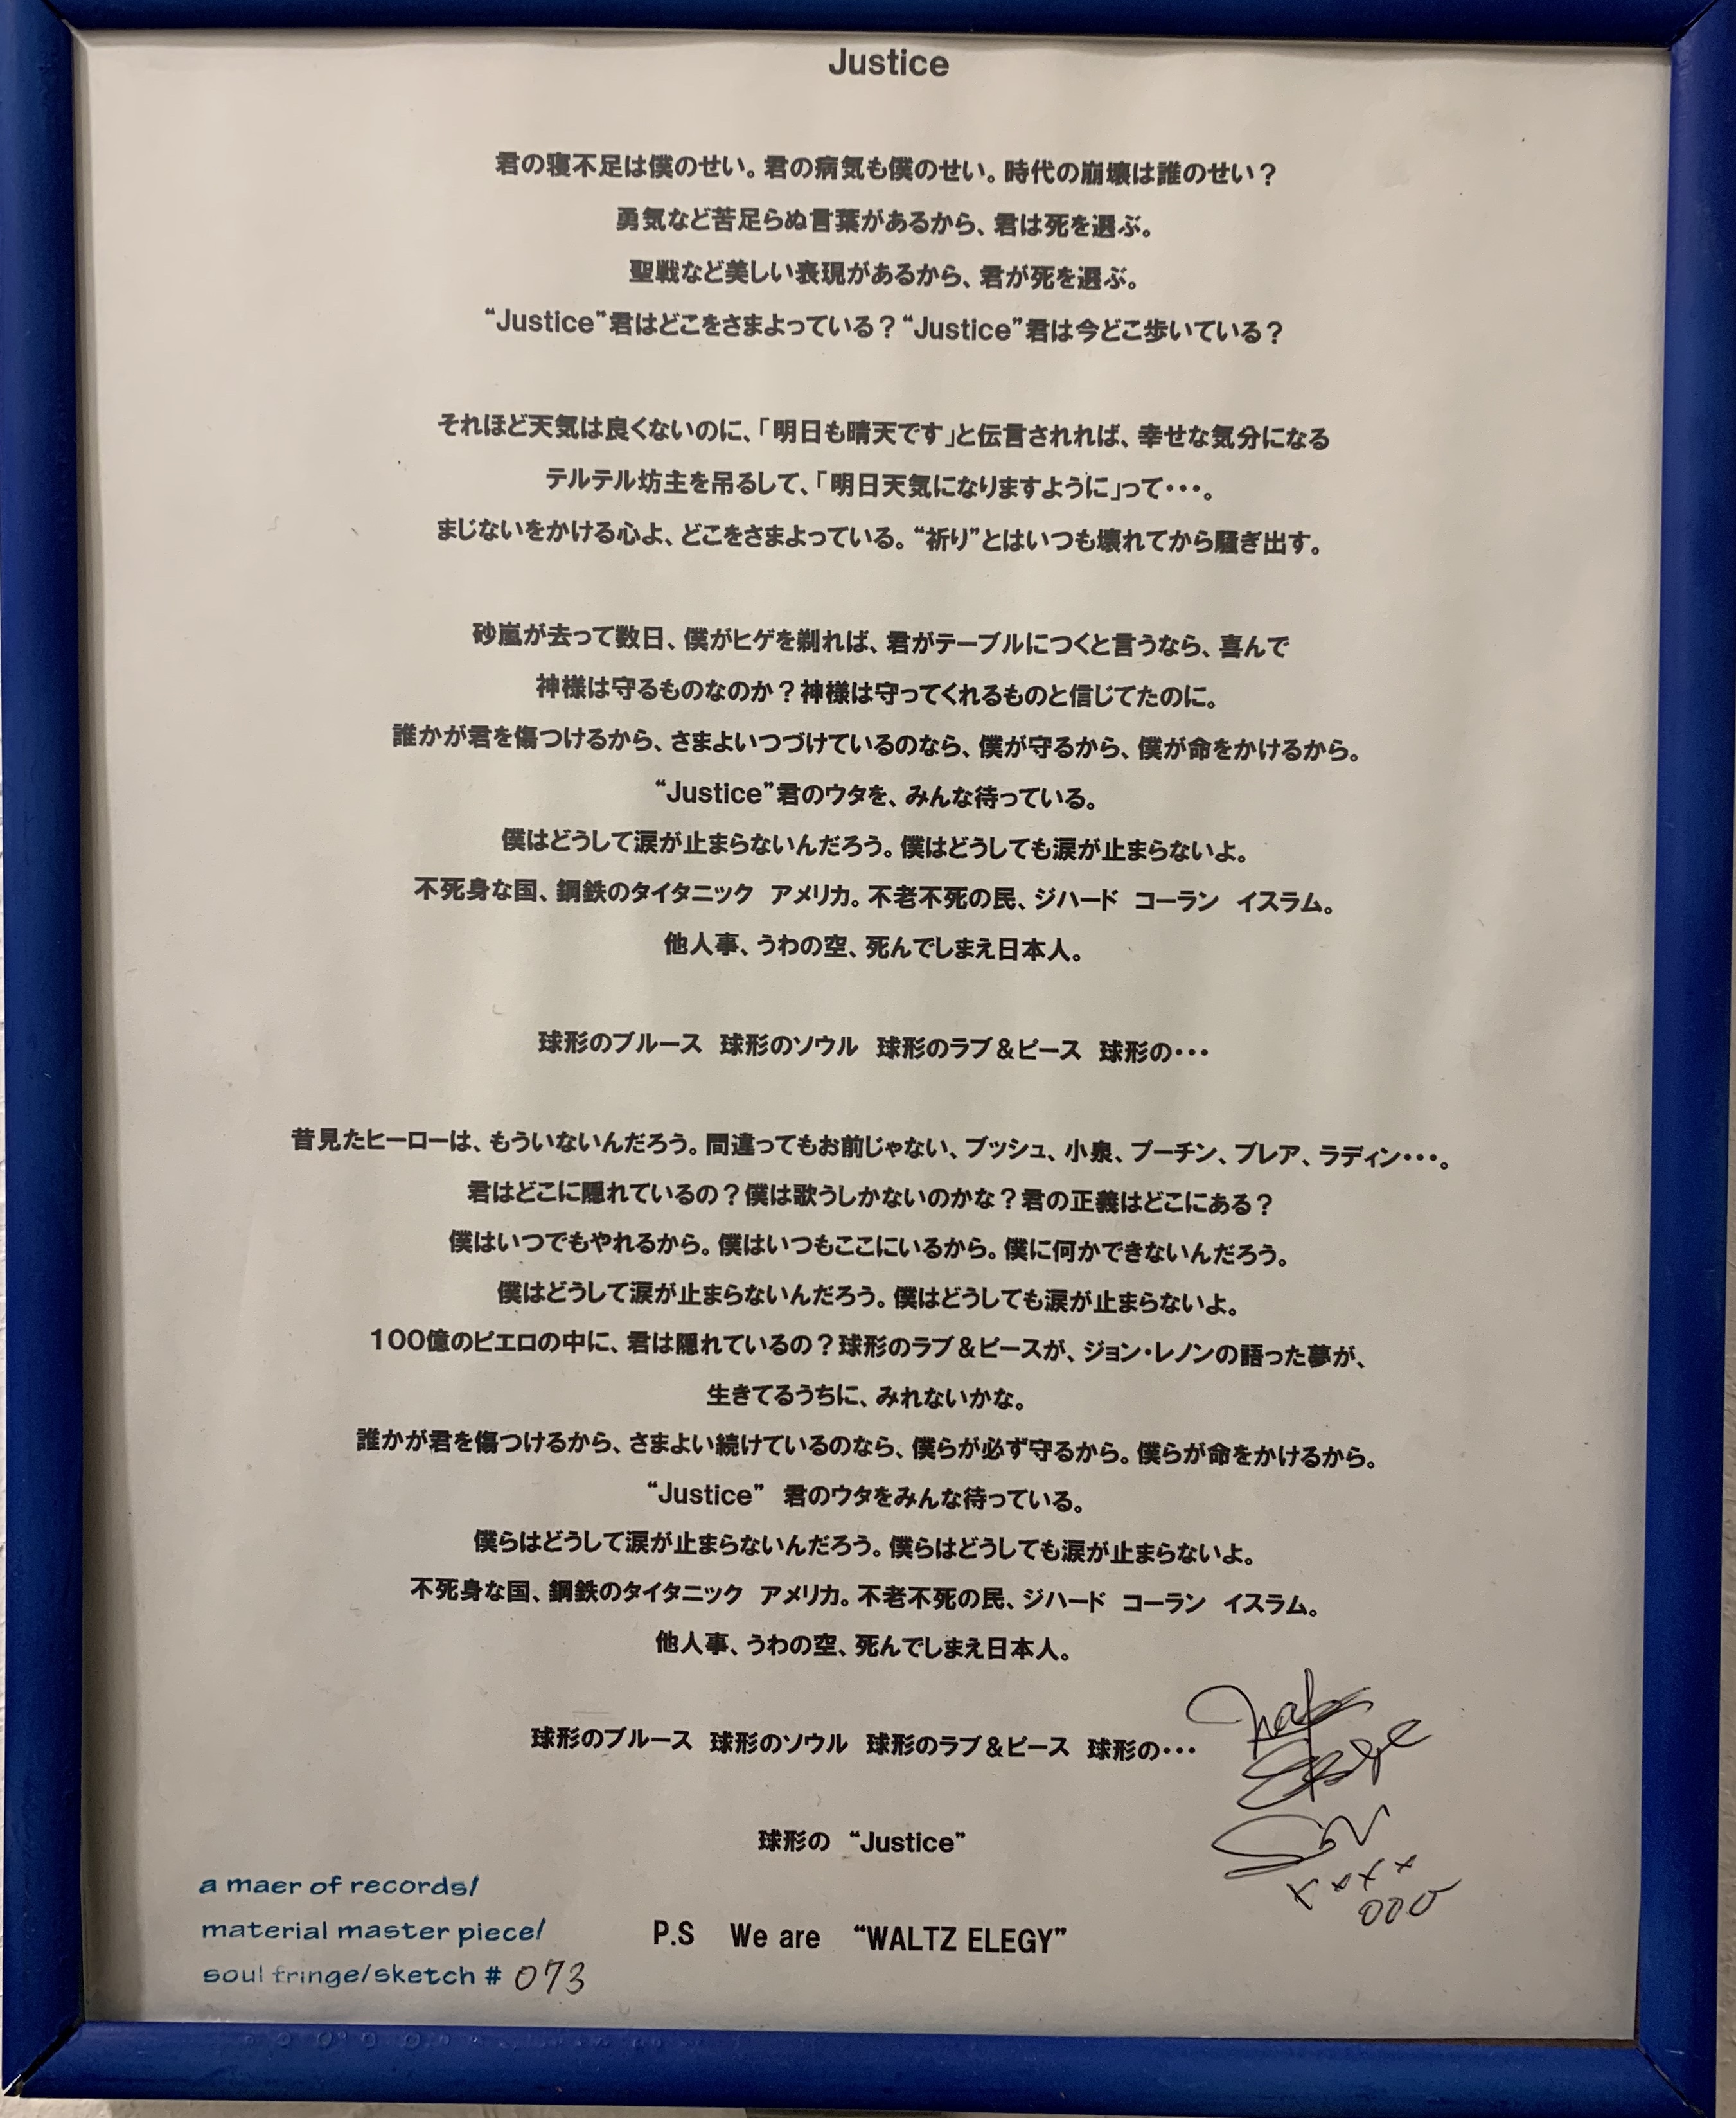 Justice
君の寝不足は僕のせい。君の病気も僕のせい。時代の崩壊は誰のせい？
勇気など苦足らぬ言葉があるから、君は死を選ぶ。
聖戦など美しい表現があるから、君が死を選ぶ。
“Justice”君はどこをさまよっている？“Justice”君は今どこ歩いている？
それほど天気は良くないのに、「明日も晴天です」と伝言されれば、幸せな気分になる
テルテル坊主を吊るして、「明日天気になりますように」って・・・。
まじないをかける心よ、どこをさまよっている。“祈り”とはいつも壊れてから騒ぎ出す。
砂嵐が去って数日、僕がヒゲを剃れば、君がテーブルにつくと言うなら、喜んで
神様は守るものなのか？神様は守ってくれるものと信じてたのに。
誰かが君を傷つけるから、さまよいつづけているのなら、僕が守るから、僕が命をかけるから。
“Justice”君のウタを、みんな待っている。
僕はどうして涙が止まらないんだろう。僕はどうしても涙が止まらないよ。
不死身な国、鋼鉄のタイタニック　アメリカ。不老不死の民、ジハード　コーラン　イスラム。
他人事、うわの空、死んでしまえ日本人。
球形のブルース　球形のソウル　球形のラブ＆ピース　球形の・・・
昔見たヒーローは、もういないんだろう。間違ってもお前じゃない、ブッシュ、小泉、プーチン、ブレア、ラディン・・・。
君はどこに隠れているの？僕は歌うしかないのかな？君の正義はどこにある？
僕はいつでもやれるから。僕はいつもここにいるから。僕に何かできないんだろう。
僕はどうして涙が止まらないんだろう。僕はどうしても涙が止まらないよ。
100億のピエロの中に、君は隠れているの？球形のラブ＆ピースが、ジョン・レノンの語った夢が、
生きてるうちに、みれないかな。
誰かが君を傷つけるから、さまよい続けているのなら、僕らが必ず守るから。僕らが命をかけるから。
“Justice”　君のウタをみんな待っている。
僕らはどうして涙が止まらないんだろう。僕らはどうしても涙が止まらないよ。
不死身な国、鋼鉄のタイタニック　アメリカ。不老不死の民、ジハード　コーラン　イスラム。
他人事、うわの空、死んでしまえ日本人。
球形のブルース　球形のソウル　球形のラブ＆ピース　球形の・・・
球形の　“Justice”
P.S　We are　“WALTZ ELEGY”
a maer of records/
material master piece/
soul fringe/sketch # 073